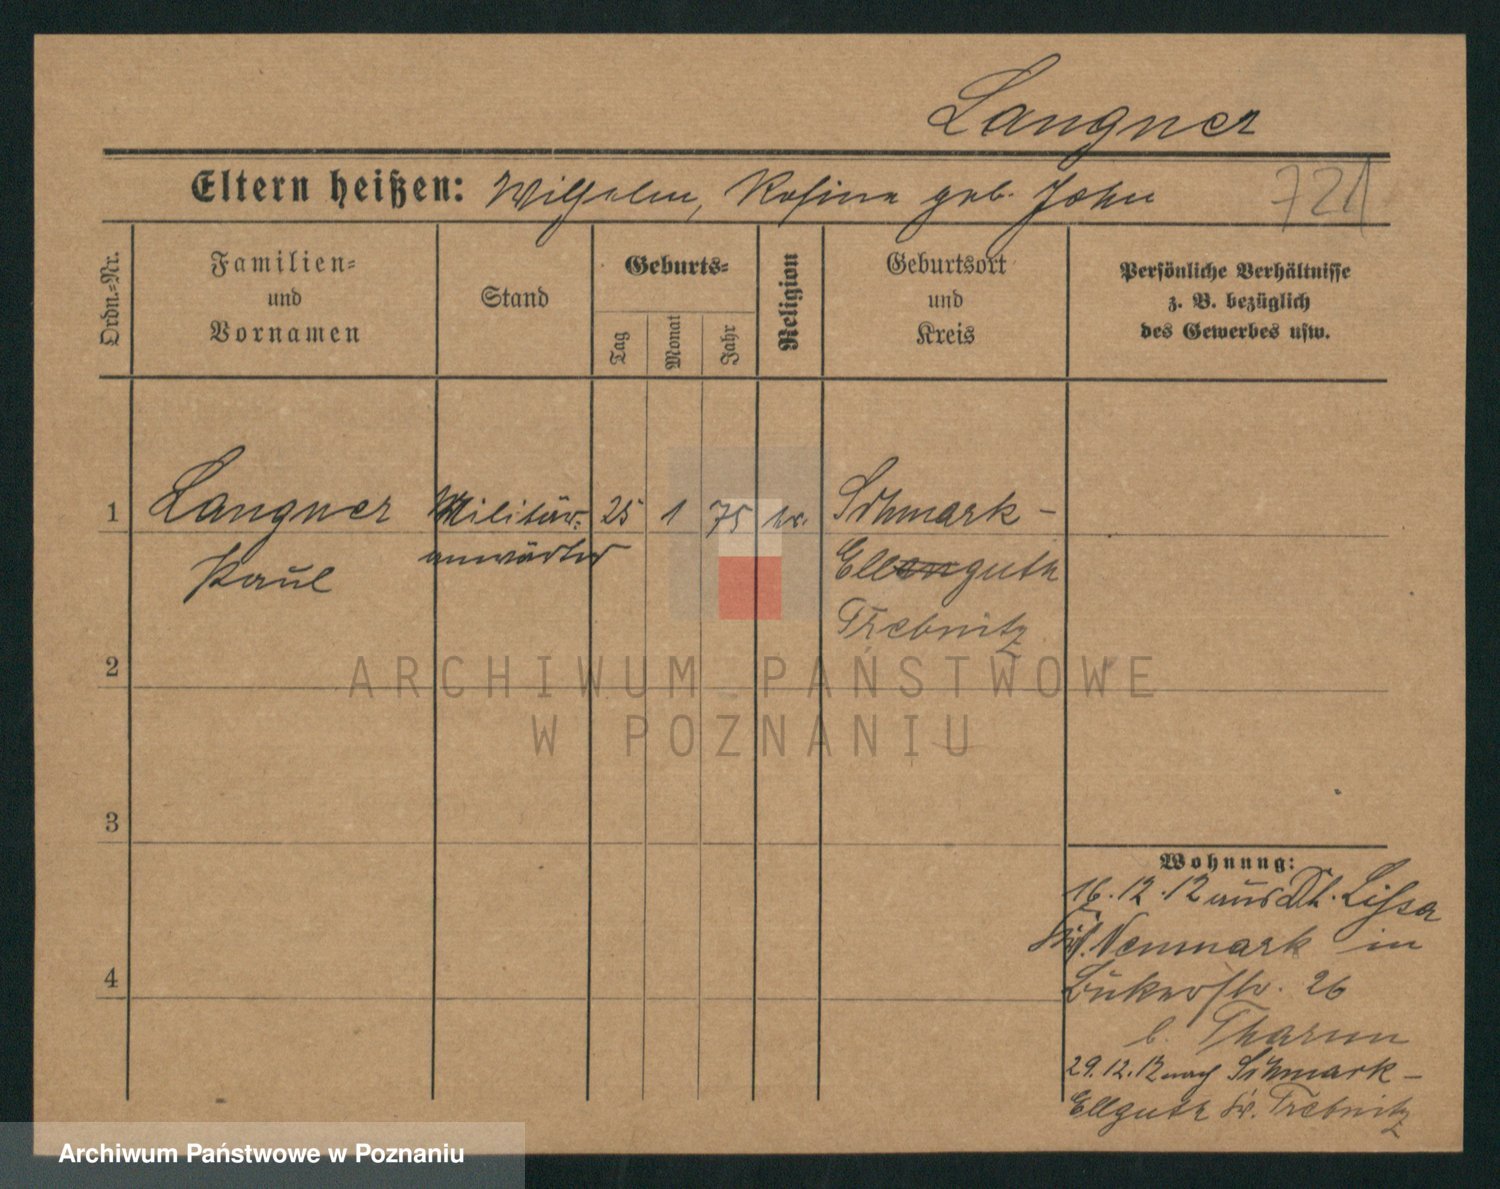 Langner
Eltern heißen: Wilhelm, Rosine geb. John
721
Ordn.-Nr.
Familien-
und
Vornamen
Stand
Geburts-
Tag
Monat
Jahr
Religion
Geburtsort
und
Kreis
Persönliche Verhältnisse
z. B. bezüglich
des Gewerbes usw.
1 Langner Militär- 25 1 75 Schmark-
Paul anwärter Ellenguth
Trebnitz
2
ARCHIWUM PAŃSTWOWE
W POZNANIU
3
4
Wohnung:
16.12.12 aus Dt. Lissa
Neumark in
Bukerstr. 26
b. Tharun
29.12.12 nach Schmark-
Ellguth Kr. Trebnitz
Archiwum Państwowe w Poznaniu